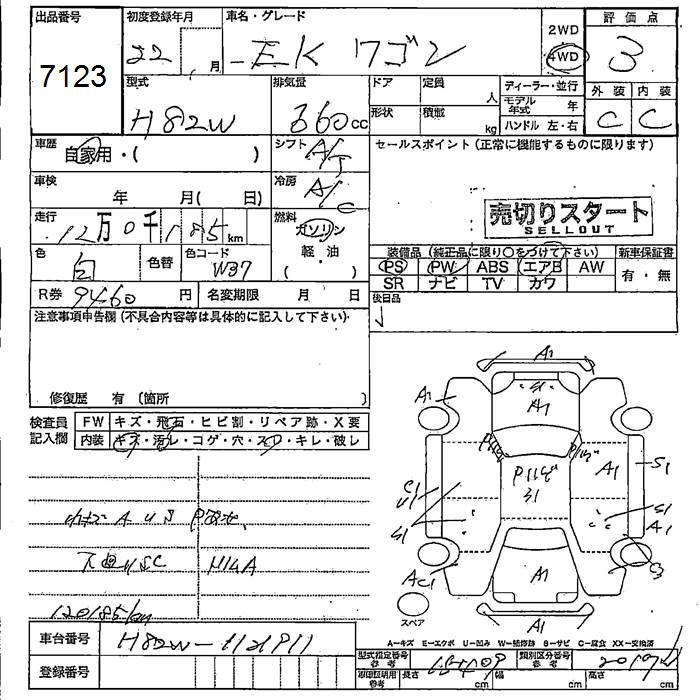 出品番号
7123
初度登録年月
22 月
車名・グレード
EK ワゴン
2WD
4WD
評価点
3
外装 内装
C C
型式
H82W
排気量
660cc
ドア 定員
人
形状 積載
kg
ディーラー・並行
モデル年式 年
ハンドル 左・右
車歴
自家用・( )
シフト
A/T
セールスポイント (正常に機能するものに限ります)
売切りスタート
SELLOUT
車検
年 月( 日)
冷房
A/C
走行
12万0千185km
燃料
ガソリン
軽・油
( ・ )
色
白
色替
色コード
W37
装備品 (純正品に限り○をつけて下さい)
新車保証書
PS PW ABS エアB AW
SR ナビ TV カワ
有・無
R券 9460円
名変期限 月 日
後日品
注意事項申告欄(不具合内容等は具体的に記入して下さい)
修復歴 有 〔箇所 〕
検査員記入欄
FW キズ・飛石・ヒビ割・リペア跡・X要
内装 キズ・汚レ・コゲ・穴・スレ・キレ・破レ
120185km
A1
A1
A1
A1
S1
A1
A1
A1
スペア
A-キズ E-エクボ U-凹み W-補修跡 S-サビ C-腐食 XX-交換済
車台番号
登録番号
型式指定番号
参考
類別区分番号
参考
車庫証明用
参考
長さ cm 幅 cm 高さ cm